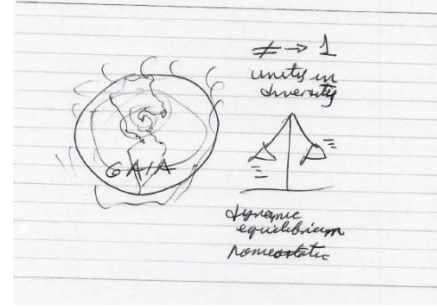 GAIA
≠ → 1
unity in
diversity
dynamic
equilibrium
homeostatic